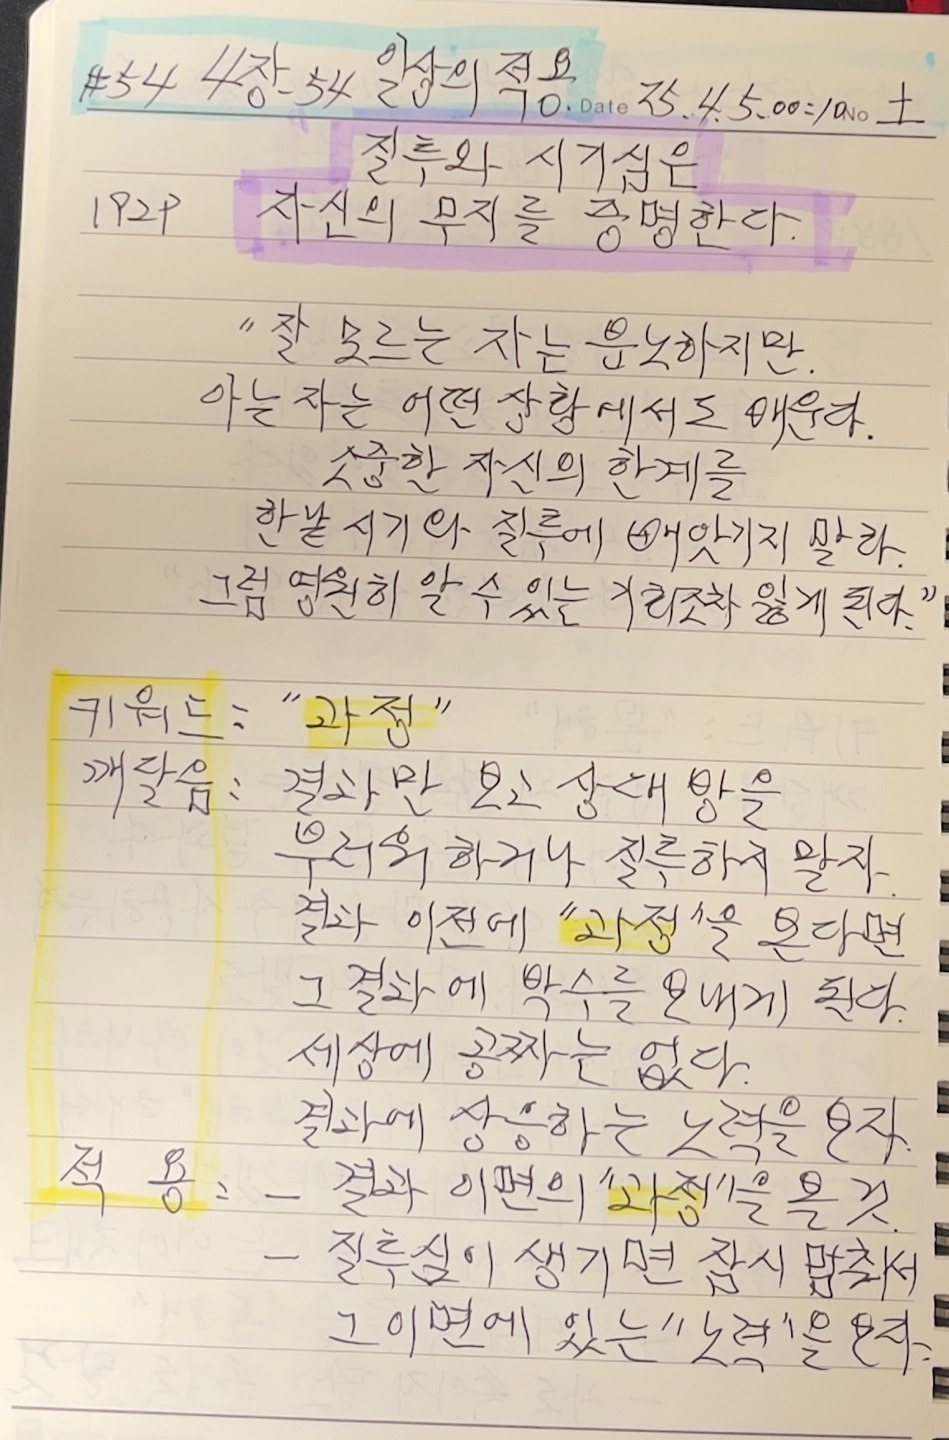 #54 4장-54 일상의 적용. Date 25.4.5.00:10 No 土
질투와 시기심은
192P 자신의 무지를 증명한다.
"잘 모르는 자는 분노하지만.
아는 자는 어떤 상황에서도 배운다.
소중한 자신의 한계를
한낱 시기와 질투에 빼앗기지 말라.
그럼 영원히 알 수 있는 기회조차 잃게 된다."
키워드: "과정"
깨달음: 결과만 보고 상대방을
부러워하거나 질투하지 말자.
결과 이전에 "과정"을 본다면
그 결과에 박수를 보내게 된다.
세상에 공짜는 없다.
결과에 상응하는 노력을 보자.
적용: - 결과 이면의 "과정"을 볼 것.
- 질투심이 생기면 잠시 멈춰서
그 이면에 있는 "노력"을 보자.